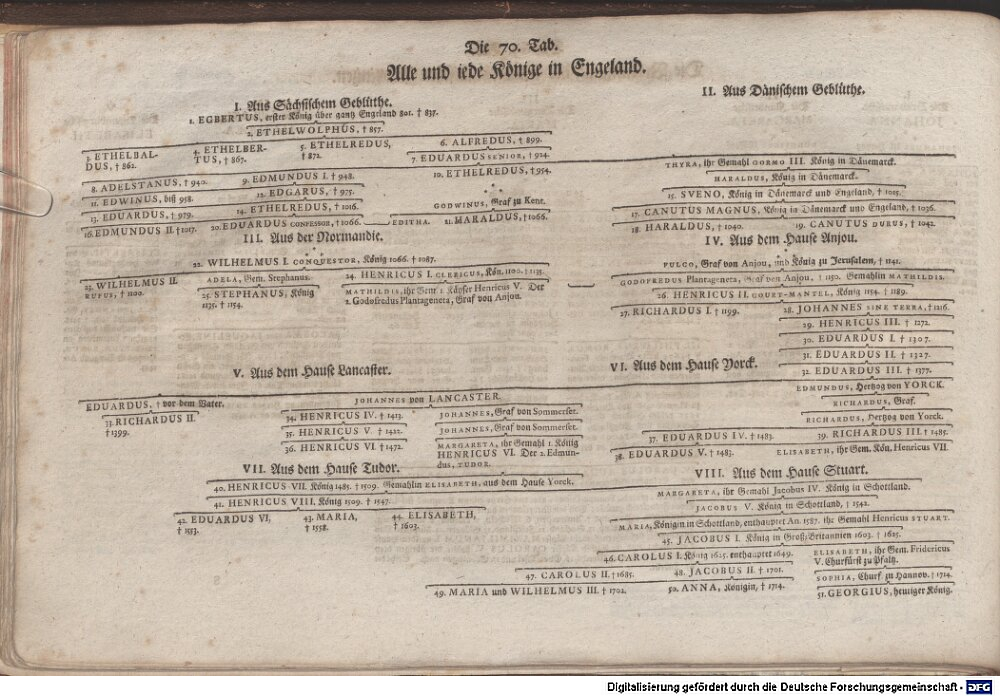 Die 70. Tab.
Alle und iede Könige in Engeland.
I. Aus Sächsischem Geblüthe.
1. EGBERTUS, erster König über gantz Engeland 801. † 837.
2. ETHELWOLPHUS, † 857.
3. ETHELBAL-
DUS, † 862.
4. ETHELBER-
TUS, † 867.
5. ETHELREDUS,
† 872.
6. ALFREDUS, † 899.
7. EDUARDUS SENIOR, † 924.
8. ADELSTANUS, † 940.
9. EDMUNDUS I. † 948.
10. ETHELREDUS, † 954.
11. EDWINUS, biß 958.
12. EDGARUS, † 975.
13. EDUARDUS, † 979.
14. ETHELREDUS, † 1016.
GODWINUS, Graf zu Kent.
16. EDMUNDUS II. † 1017.
20. EDUARDUS CONFESSOR, † 1066.
EDITHA.
21. HARALDUS, † 1066.
II. Aus Dänischem Geblüthe.
THYRA, ihr Gemahl GORMO III. König in Dänemarck.
HARALDUS, König in Dänemarck.
15. SVENO, König in Dänemarck und Engeland, † 1015.
17. CANUTUS MAGNUS, König in Dänemarck und Engeland, † 1036.
18. HARALDUS, † 1040.
19. CANUTUS DURUS, † 1042.
III. Aus der Normandie.
22. WILHELMUS I. CONQUESTOR, König 1066. † 1087.
23. WILHELMUS II.
RUFUS, † 1100.
ADELA, Gem. Stephanus.
25. STEPHANUS, König
1135. † 1154.
24. HENRICUS I. CLERICUS, Kön. 1100. † 1135.
MATHILDIS, ihr Gem. 1. Käyser Henricus V. Der
2. Godofredus Plantageneta, Graf von Anjou.
IV. Aus dem Hause Anjou.
FULCO, Graf von Anjou, und König zu Jerusalem, † 1141.
GODOFREDUS Plantageneta, Graf von Anjou. † 1150. Gemahlin MATHILDIS.
26. HENRICUS II. COURT-MANTEL, König 1154. † 1189.
27. RICHARDUS I. † 1199.
28. JOHANNES SINE TERRA, † 1216.
29. HENRICUS III. † 1272.
30. EDUARDUS I. † 1307.
31. EDUARDUS II. † 1327.
32. EDUARDUS III. † 1377.
V. Aus dem Hause Lancaster.
EDUARDUS, † vor dem Vater.
33. RICHARDUS II.
† 1399.
JOHANNES von LANCASTER.
34. HENRICUS IV. † 1413.
35. HENRICUS V. † 1422.
36. HENRICUS VI. † 1472.
JOHANNES, Graf von Sommerset.
JOHANNES, Graf von Sommerset.
MARGARETA, ihr Gemahl 1. König
HENRICUS VI. Der 2. Edmun-
dus, TUDOR.
VI. Aus dem Hause Yorck.
EDMUNDUS, Hertzog von YORCK.
RICHARDUS, Graf.
RICHARDUS, Hertzog von Yorck.
37. EDUARDUS IV. † 1483.
39. RICHARDUS III. † 1485.
38. EDUARDUS V. † 1483.
ELISABETH, ihr Gem. Kön. Henricus VII.
VII. Aus dem Hause Tudor.
40. HENRICUS VII. König 1485. † 1509. Gemahlin ELISABETH, aus dem Hause Yorck.
41. HENRICUS VIII. König 1509. † 1547.
42. EDUARDUS VI,
† 1553.
43. MARIA,
† 1558.
44. ELISABETH,
† 1603.
VIII. Aus dem Hause Stuart.
MARGARETA, ihr Gemahl Jacobus IV. König in Schottland.
JACOBUS V. König in Schottland, † 1542.
MARIA, Königin in Schottland, enthauptet An. 1587. ihr Gemahl Henricus STUART.
45. JACOBUS I. König in Groß-Britannien 1603. † 1625.
46. CAROLUS I. König 1625. enthauptet 1649.
ELISABETH, ihr Gem. Fridericus
V. Churfürst zu Pfaltz.
47. CAROLUS II. † 1685.
48. JACOBUS II. † 1701.
SOPHIA, Churf. zu Hannov. † 1714.
49. MARIA und WILHELMUS III. † 1702.
50. ANNA, Königin, † 1714.
51. GEORGIUS, heutiger König.
Digitalisierung gefördert durch die Deutsche Forschungsgemeinschaft - DFG